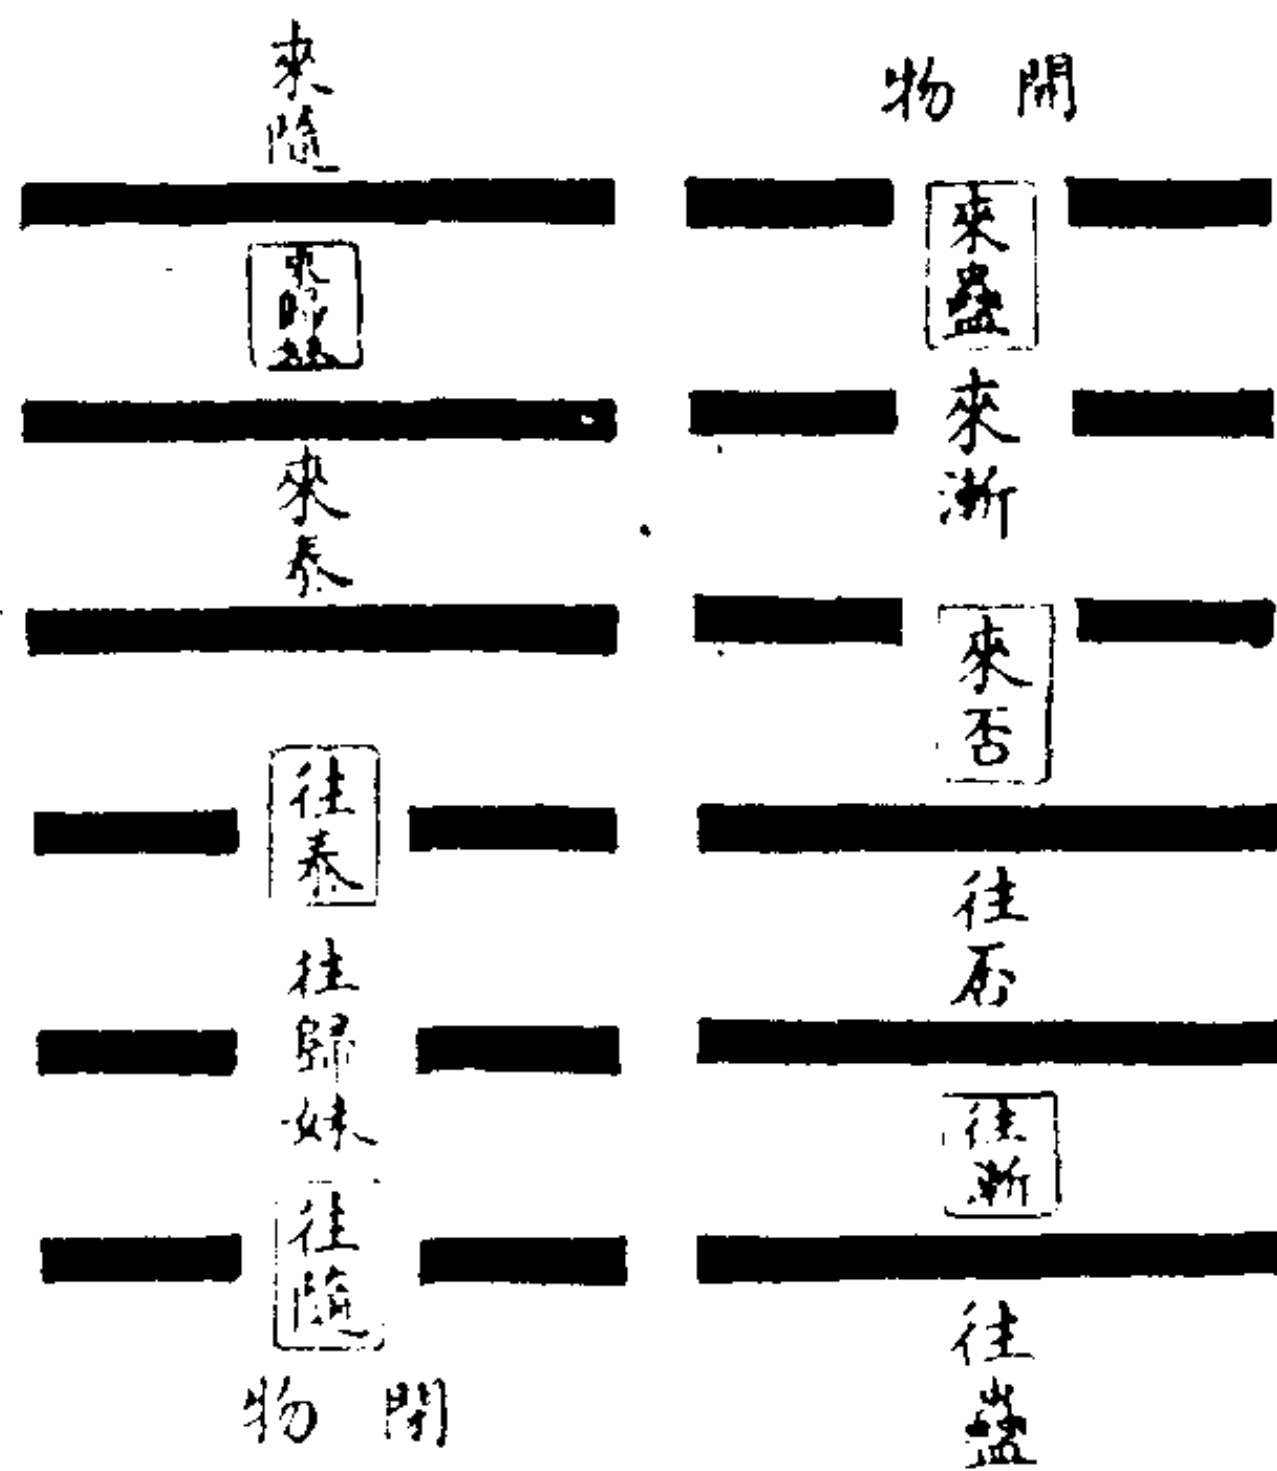 開物
來蠱
來漸
來否
往否
往漸
往蠱
來隨
來歸妹
來泰
往泰
往歸妹
往隨
閉物